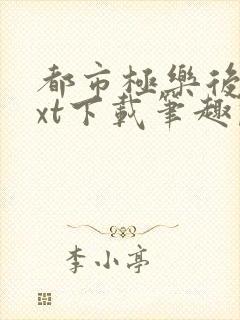 都市極樂後
xt下載筆趣
李小亭